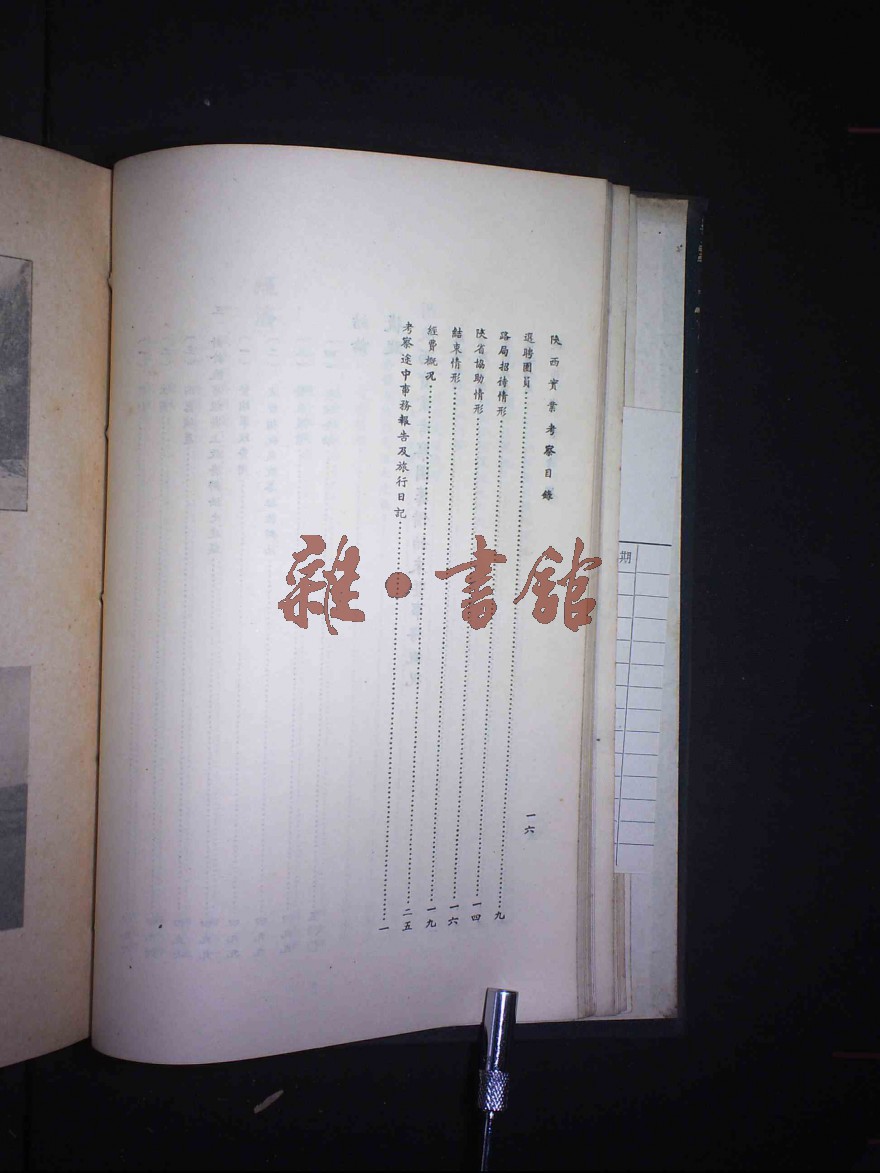 陝西實業考察目錄
一六
選聘團員……………………九
路局招待情形……………………一四
陝省協助情形……………………一六
結束情形……………………一九
經費概況……………………二五
考察途中事務報告及旅行日記……………………一
雜·書館
期